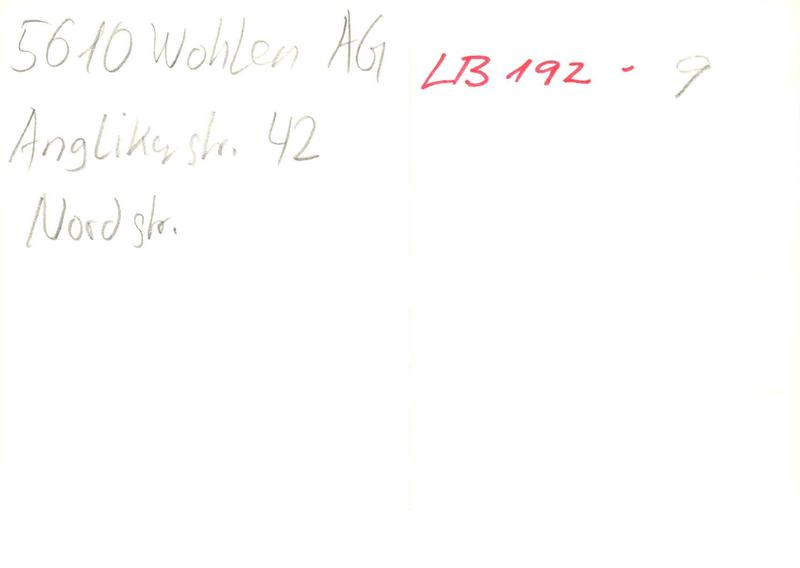 5610 Wohlen AG
Anglikerstr. 42
Nordstr.
LB 192 - 9